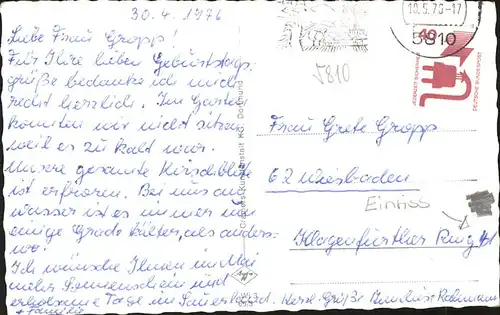 30.4.1976
Liebe Frau Gropp!
Für Ihre lieben Geburtstags-
grüße bedanke ich mich
recht herzlich. Im Garten
konnten wir nicht sitzen,
weil es zu kalt war.
Unsere gesamte Kirschblüte
ist erfroren. Bei uns am
Wasser ist es immer um
einige Grade kälter, als anders-
wo!
Ich wünsche Ihnen im Mai
mehr Sonnenschein und
erholsame Tage im Sauerland. Herzl. Grüße
+ Familie
10.5.76-17
5810
5810
40
DEUTSCHE BUNDESPOST
Frau Grete Gropp
62 Wiesbaden
Einriss
Klagenfurther Ring